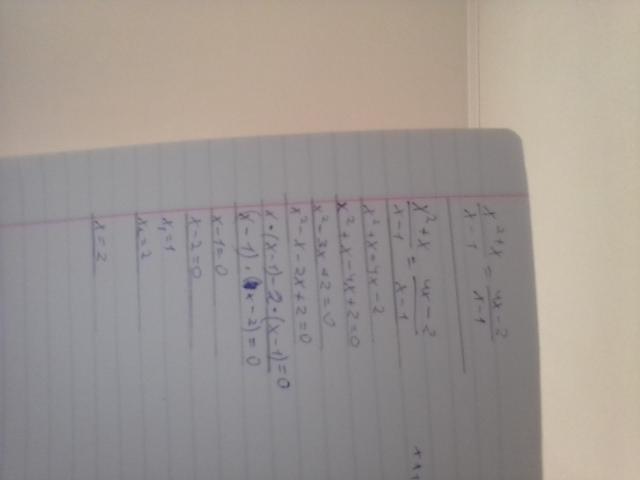 x²+x / x-1 = 4x-2 / x-1
x²+x / x-1 = 4x-2 / x-1
x²+x=4x-2
x²+x-4x+2=0
x²-3x+2=0
x²-x-2x+2=0
x•(x-1)-2•(x-1)=0
(x-1)•(x-2)=0
x-1=0
x-2=0
x₁=1
x₂=2
x=2